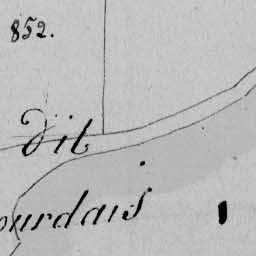 852.
dit
ourdais